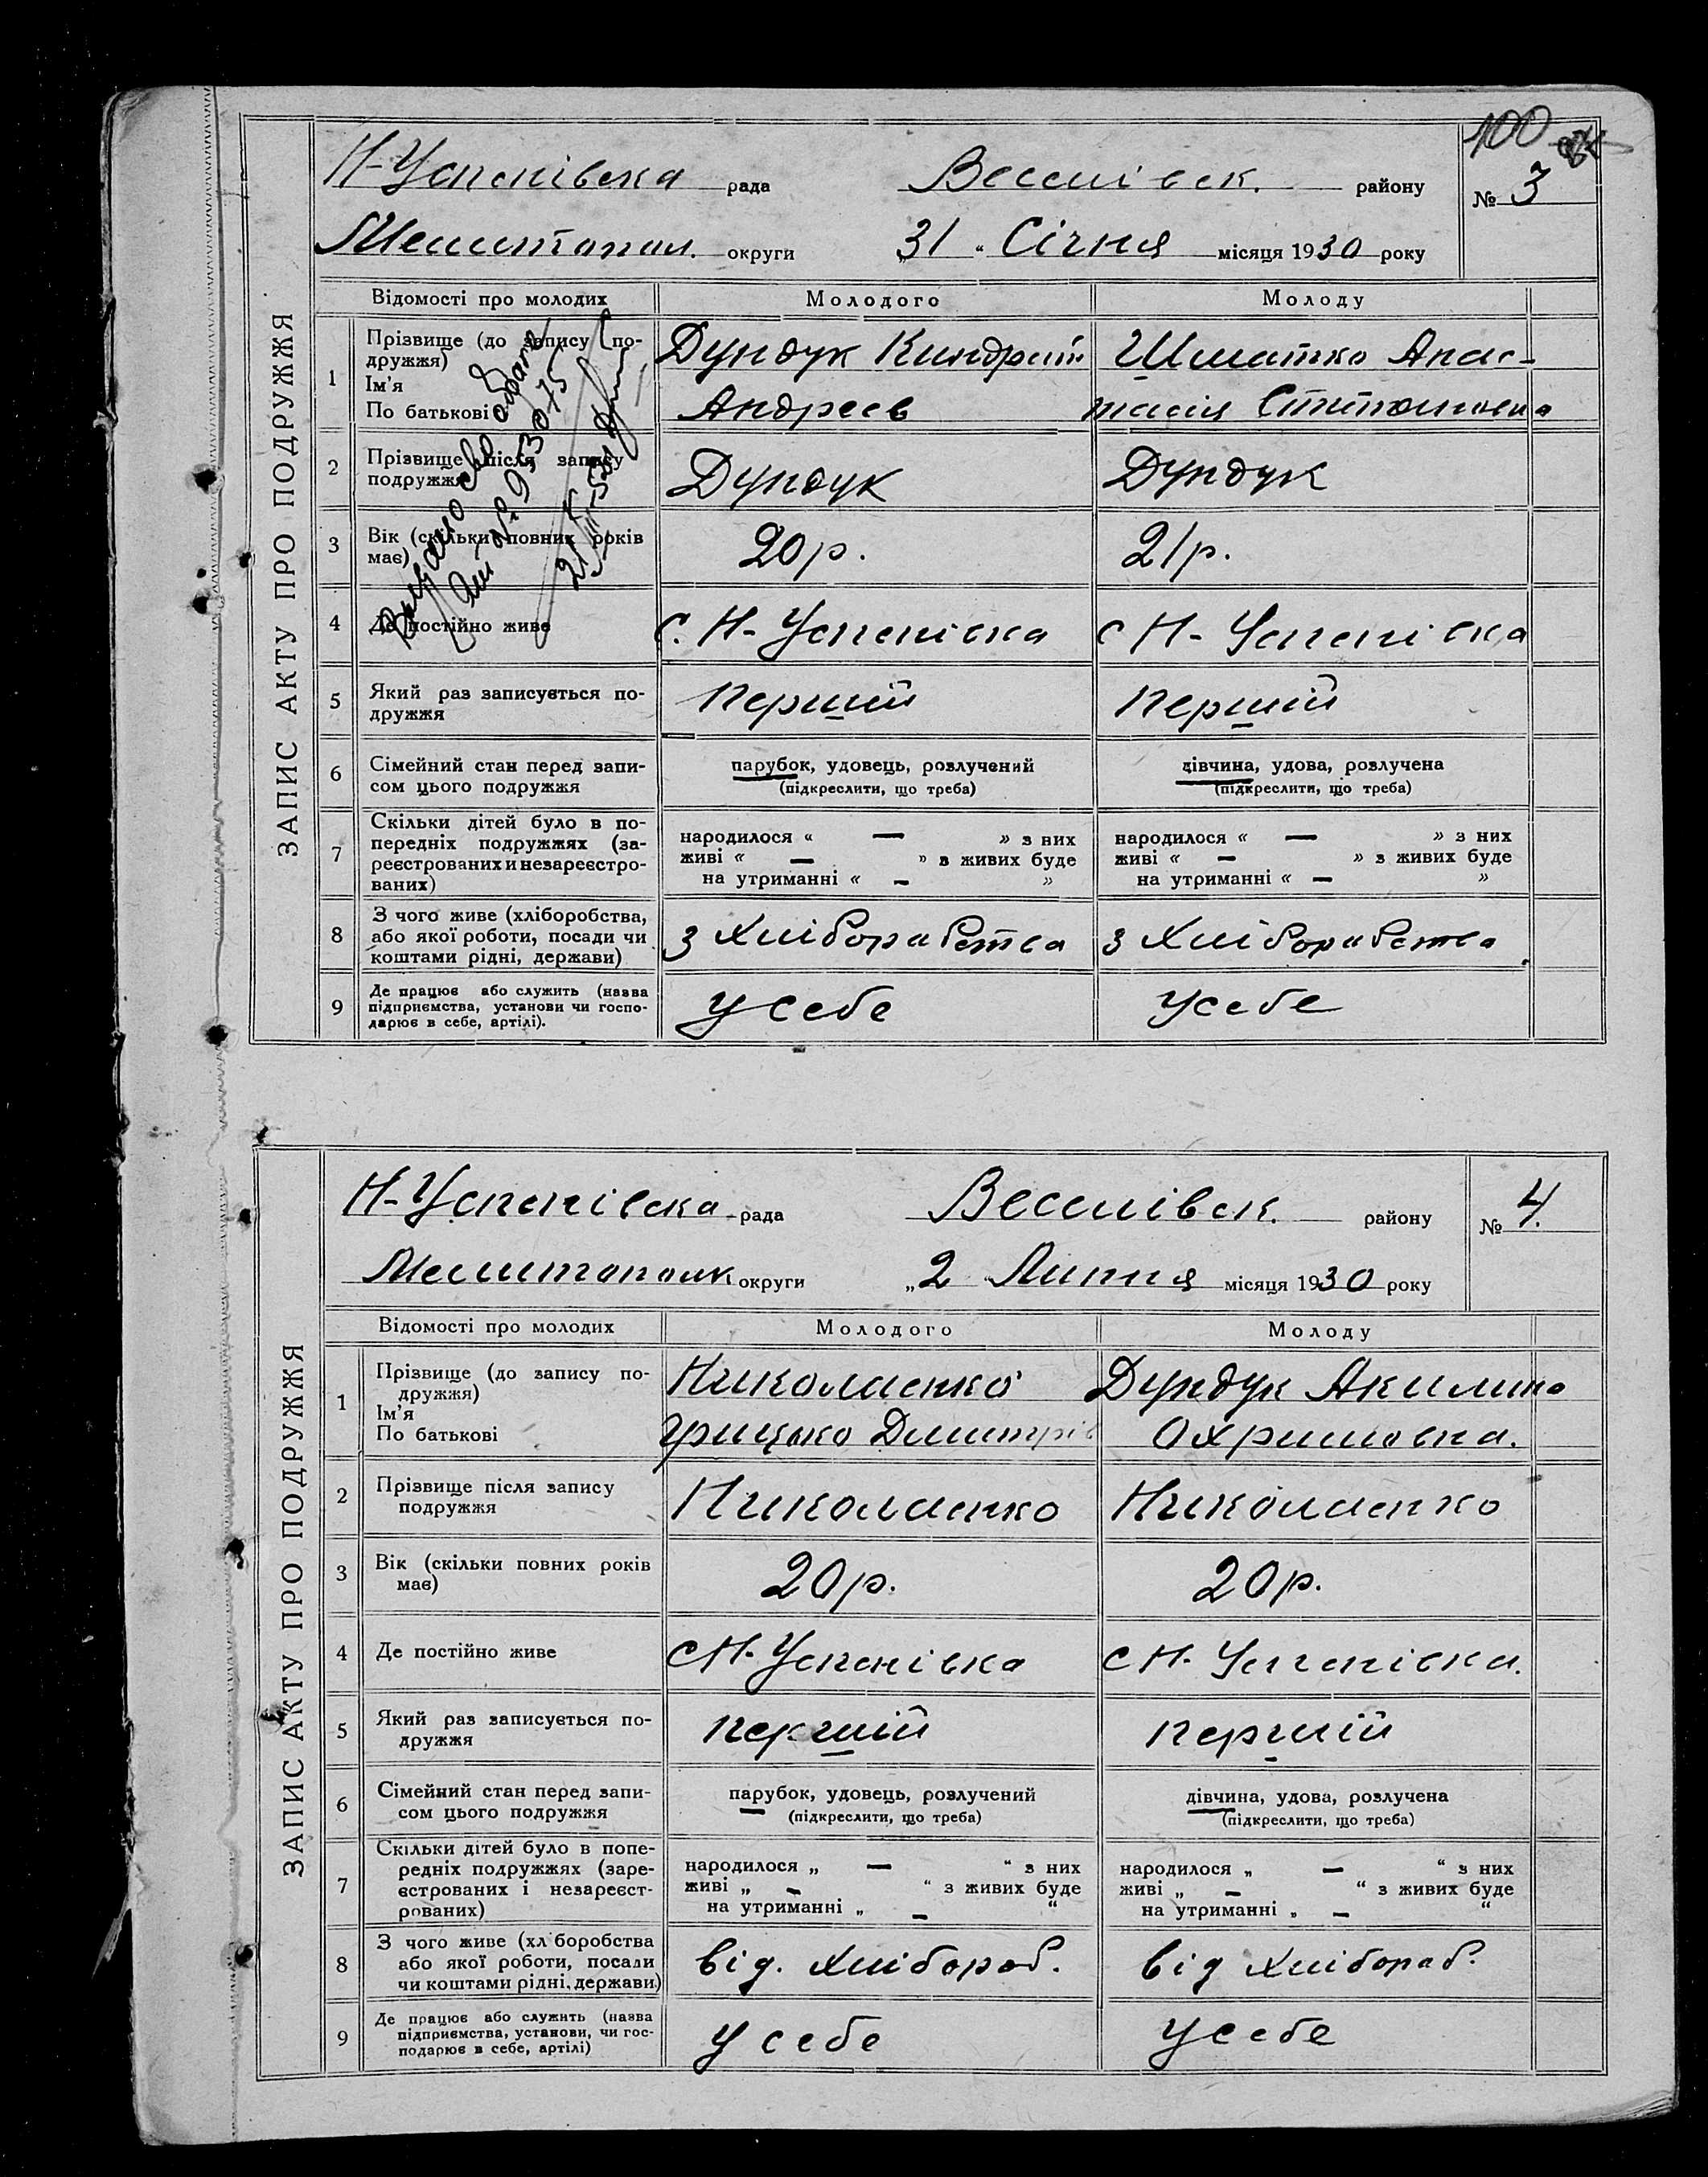 100
Н-Успенівска рада Веселівск. району № 3
Мелитопол. округи „31“ Січня місяця 1930 року
ЗАПИС АКТУ ПРО ПОДРУЖЖЯ
Відомості про молодих Молодого Молоду
1 Прізвище (до запису подружжя) Дундук Киндрат Шматко Анас-
Ім'я
По батькові Андреев тасія Степановна
2 Прізвище після запису
подружжя Дундук Дундук
3 Вік (скільки повних років
має) 20р. 21р.
4 Де постійно живе с. Н-Успенівка с Н-Успенівка
5 Який раз записується по-
дружжя першій першій
6 Сімейний стан перед запи- парубок, удовець, розлучений дівчина, удова, розлучена
сом цього подружжя (підкреслити, що треба) (підкреслити, що треба)
7 Скільки дітей було в по-
передніх подружжях (за- народилося « — » з них народилося « — » з них
реєстрованих и незареєстро- живі « — » з живих буде живі « — » з живих буде
ваних) на утриманні « — » на утриманні « — »
8 З чого живе (хліборобства,
або якої роботи, посади чи з хліборабства з хліборабства
коштами рідні, держави)
9 Де працює або служить (назва
підприємства, установи чи госпо- у себе у себе
дарює в себе, артілі).
Н-Успенівска рада Веселівск. району № 4.
Мелитополк округи „2“ Липня місяця 1930 року
ЗАПИС АКТУ ПРО ПОДРУЖЖЯ
Відомості про молодих Молодого Молоду
1 Прізвище (до запису по- Николаенко Дундук Акилина
дружжя)
Ім'я
По батькові Грицько Дмитрів Охримовна.
2 Прізвище після запису
подружжя Николаенко Николаенко
3 Вік (скільки повних років
має) 20р. 20р.
4 Де постійно живе с Н-Успенівка с Н-Успенівка.
5 Який раз записується по-
дружжя першій першій
6 Сімейний стан перед запи- парубок, удовець, розлучений дівчина, удова, розлучена
сом цього подружжя (підкреслити, що треба) (підкреслити, що треба)
7 Скільки дітей було в попе-
редніх подружжях (заре- народилося „ — “ з них народилося „ — “ з них
єстрованих і незареєст- живі „ — “ з живих буде живі „ — “ з живих буде
рованих) на утриманні „ — “ на утриманні „ — “
8 З чого живе (хліборобства
або якої роботи, посади від. хлібораб. від хлібораб.
чи коштами рідні, держави)
9 Де працює або служить (назва
підприємства, установи, чи гос- у себе у себе
подарює в себе, артілі)